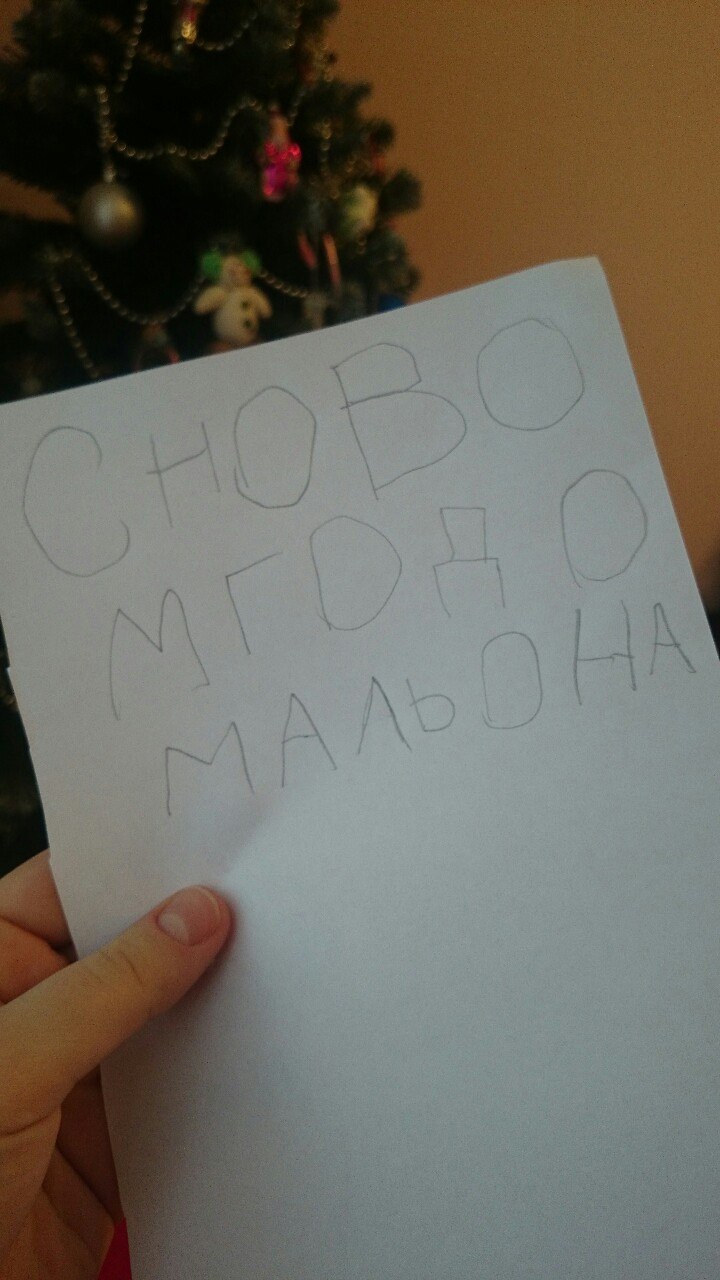 СНОВО
МГОДО
МАЛЬОНА